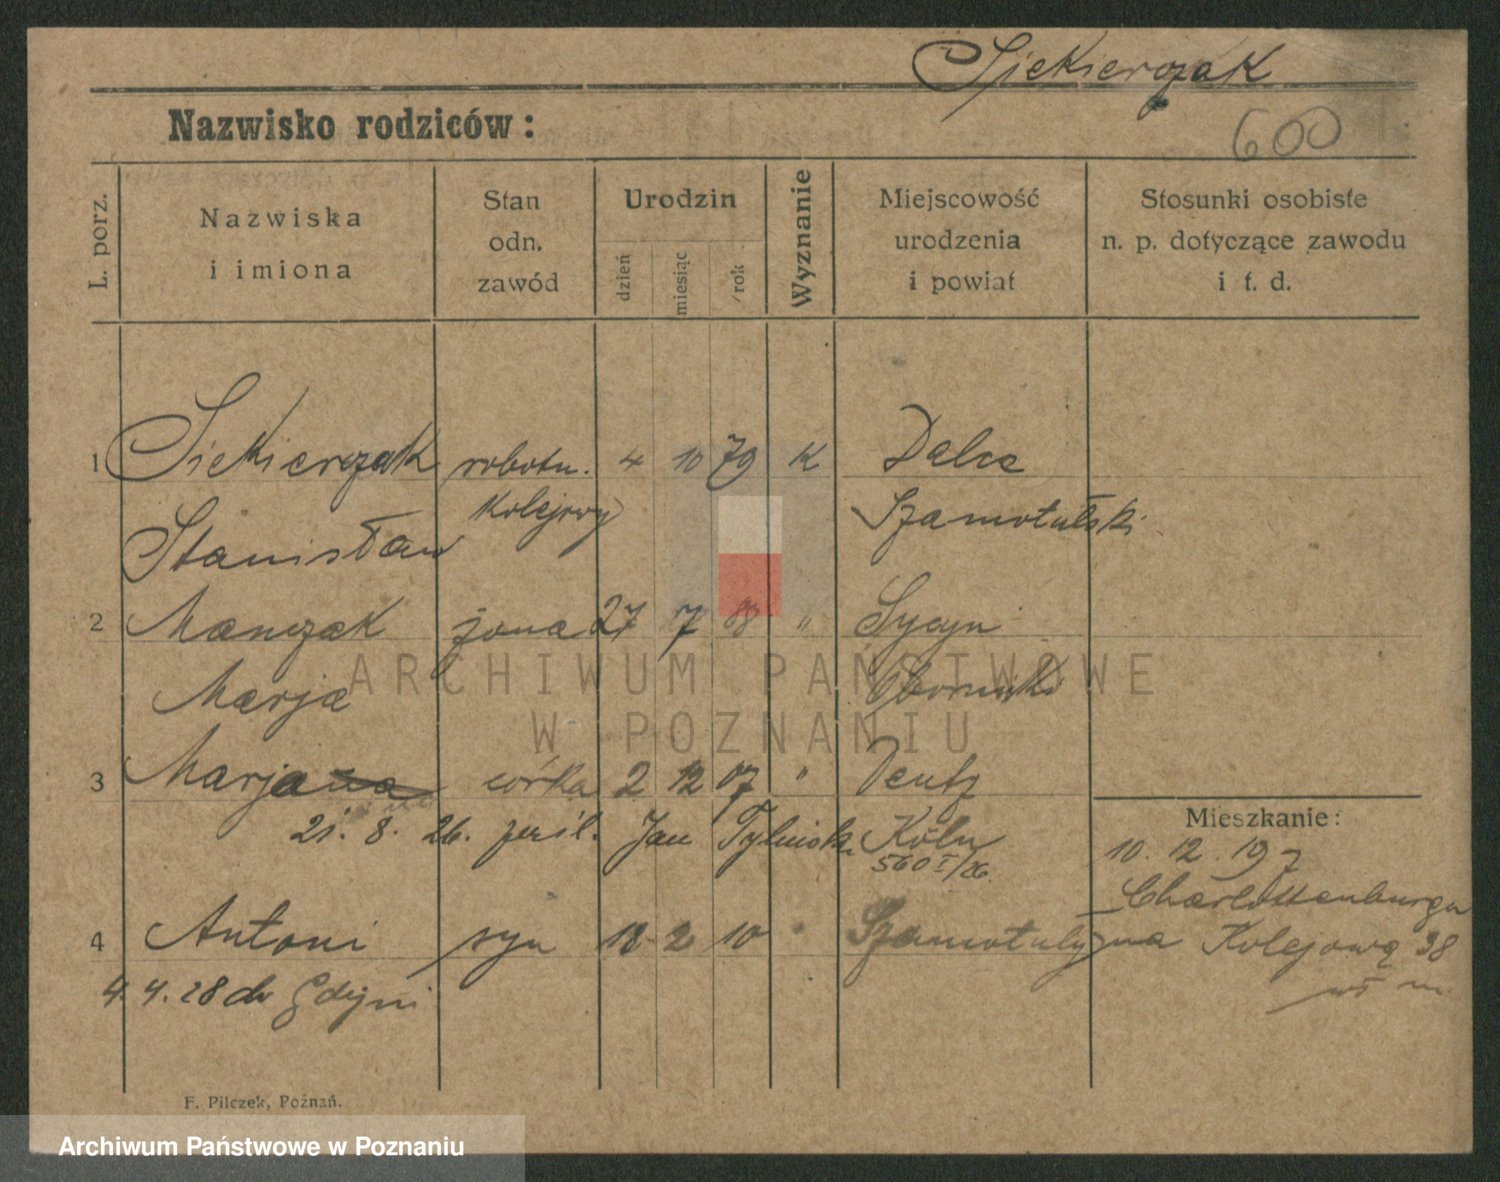 Siekierczak
Nazwisko rodziców:
600
L. porz.
Nazwiska
i imiona
Stan
odn.
zawód
Urodzin
dzień
miesiąc
rok
Wyznanie
Miejscowość
urodzenia
i powiat
Stosunki osobiste
n. p. dotyczące zawodu
i t. d.
1 Siekierczak robotn. 4 10 79 K
kolejowy Szamotulski
Stanisław
2 Manczak żona 27 7 88 " Sycyn
Marja Obornicki
3 Marjanna córka 2 12 07 " Deutz
21. 8. 26. Jan Köln
560 I/26.
Mieszkanie:
10. 12. 197
Charlottenburga
4 Antoni syn 18 2 10 " Szamotuły na Kolejową 38
4. 4. 28 do Gdyni
F. Pilczek, Poznań.
ARCHIWUM PAŃSTWOWE
W POZNANIU
Archiwum Państwowe w Poznaniu